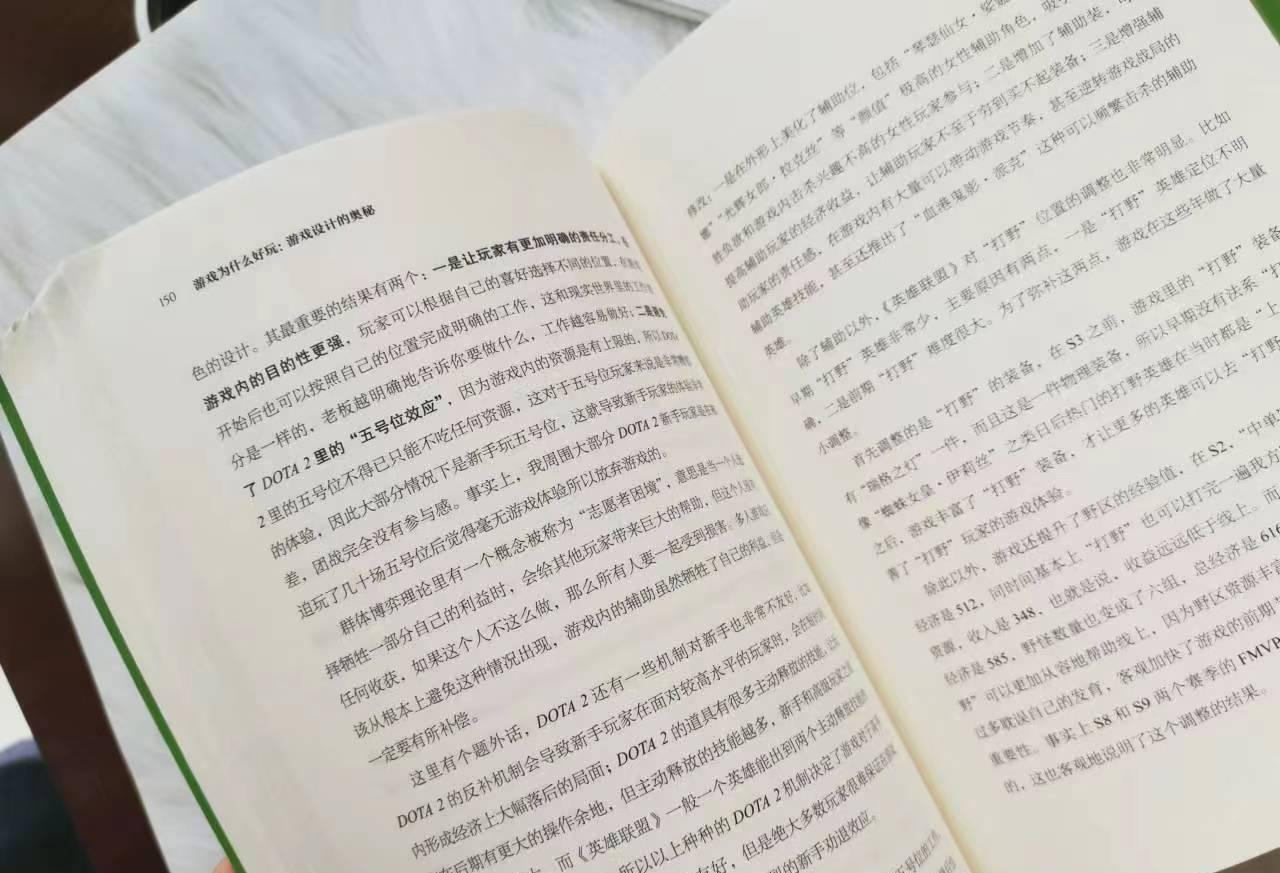 150 游戏为什么好玩：游戏设计的奥秘
色的设计。其最重要的结果有两个：一是让玩家有更加明确的责任分工，
游戏内的目的性更强，玩家可以根据自己的喜好选择不同的位置，
开始后也可以按照自己的位置完成明确的工作，这和现实世界里的工作
分是一样的，老板越明确地告诉你要做什么，工作越容易做好；二是
了 DOTA 2 里的“五号位效应”，因为游戏内的资源是有上限的，所以 DOTA
2 里的五号位不得已只能不吃任何资源，这对于五号位玩家来说是非常
的体验，因此大部分情况下是新手玩五号位，这就导致新手玩家的体验
差，团战完全没有参与感。事实上，我周围大部分 DOTA 2 新手玩家是在
迫玩了几十场五号位后觉得毫无游戏体验所以放弃游戏的。
群体博弈理论里有一个概念被称为“志愿者困境”，意思是当一个人选
择牺牲一部分自己的利益时，会给其他玩家带来巨大的帮助，但这个人没有
任何收获，如果这个人不这么做，那么所有人要一起受到损害。多人游戏
该从根本上避免这种情况出现，游戏内的辅助虽然牺牲了自己的利益，但
一定要有所补偿。
这里有个题外话，DOTA 2 还有一些机制对新手也非常不友好，比如
DOTA 2 的反补机制会导致新手玩家在面对较高水平的玩家时，会在
内形成经济上大幅落后的局面；DOTA 2 的道具有很多主动释放的技能，
在后期有更大的操作余地，但主动释放的技能越多，新手和高级玩家之
而《英雄联盟》一般一个英雄能出到两个主动释放技能
所以以上种种的 DOTA 2 机制决定了游戏对新手
友好，但是绝大多数玩家很难保证
的新手劝退效应。
号位的
修改：一是在外形上美化了辅助位，包括“琴瑟仙女·娑
”“光辉女郎·拉克丝”等“颜值”极高的女性辅助角色，吸
性负欲和游戏内击杀兴趣不高的女性玩家参与；二是增加了辅助装，
提高辅助玩家的经济收益，让辅助玩家不至于穷到买不起装备；三是增强辅
助玩家的责任感，在游戏内有大量可以带动游戏节奏，甚至逆转游戏战局的
辅助英雄技能，甚至还推出了“血港鬼影·派克”这种可以频繁击杀的辅助
英雄。
除了辅助以外，《英雄联盟》对“打野”位置的调整也非常明显。比如
早期“打野”英雄非常少，主要原因有两点，一是“打野”英雄定位不明
确，二是前期“打野”难度很大。为了弥补这两点，游戏在这些年做了大量
小调整。
首先调整的是“打野”的装备，在 S3 之前，游戏里的“打野”装备
有“瑞格之灯”一件，而且这是一件物理装备，所以早期没有法系“打
像“蜘蛛女皇·伊莉丝”之类日后热门的打野英雄在当时都是“上
之后，游戏丰富了“打野”装备，才让更多的英雄可以去“打野
善了“打野”玩家的游戏体验。
除此以外，游戏还提升了野区的经验值，在 S2，“中单
经济是 512，同时间基本上“打野”也可以打完一遍我方
资源，收入是 348，也就是说，收益远远低于线上。而
经济是 585，野怪数量也变成了六组，总经济是 616
野”可以更加从容地帮助线上，因为野区资源丰富
过多耽误自己的发育，客观加快了游戏的前期
重要性。事实上 S8 和 S9 两个赛季的 FMVP
的，这也客观地说明了这个调整的结果。